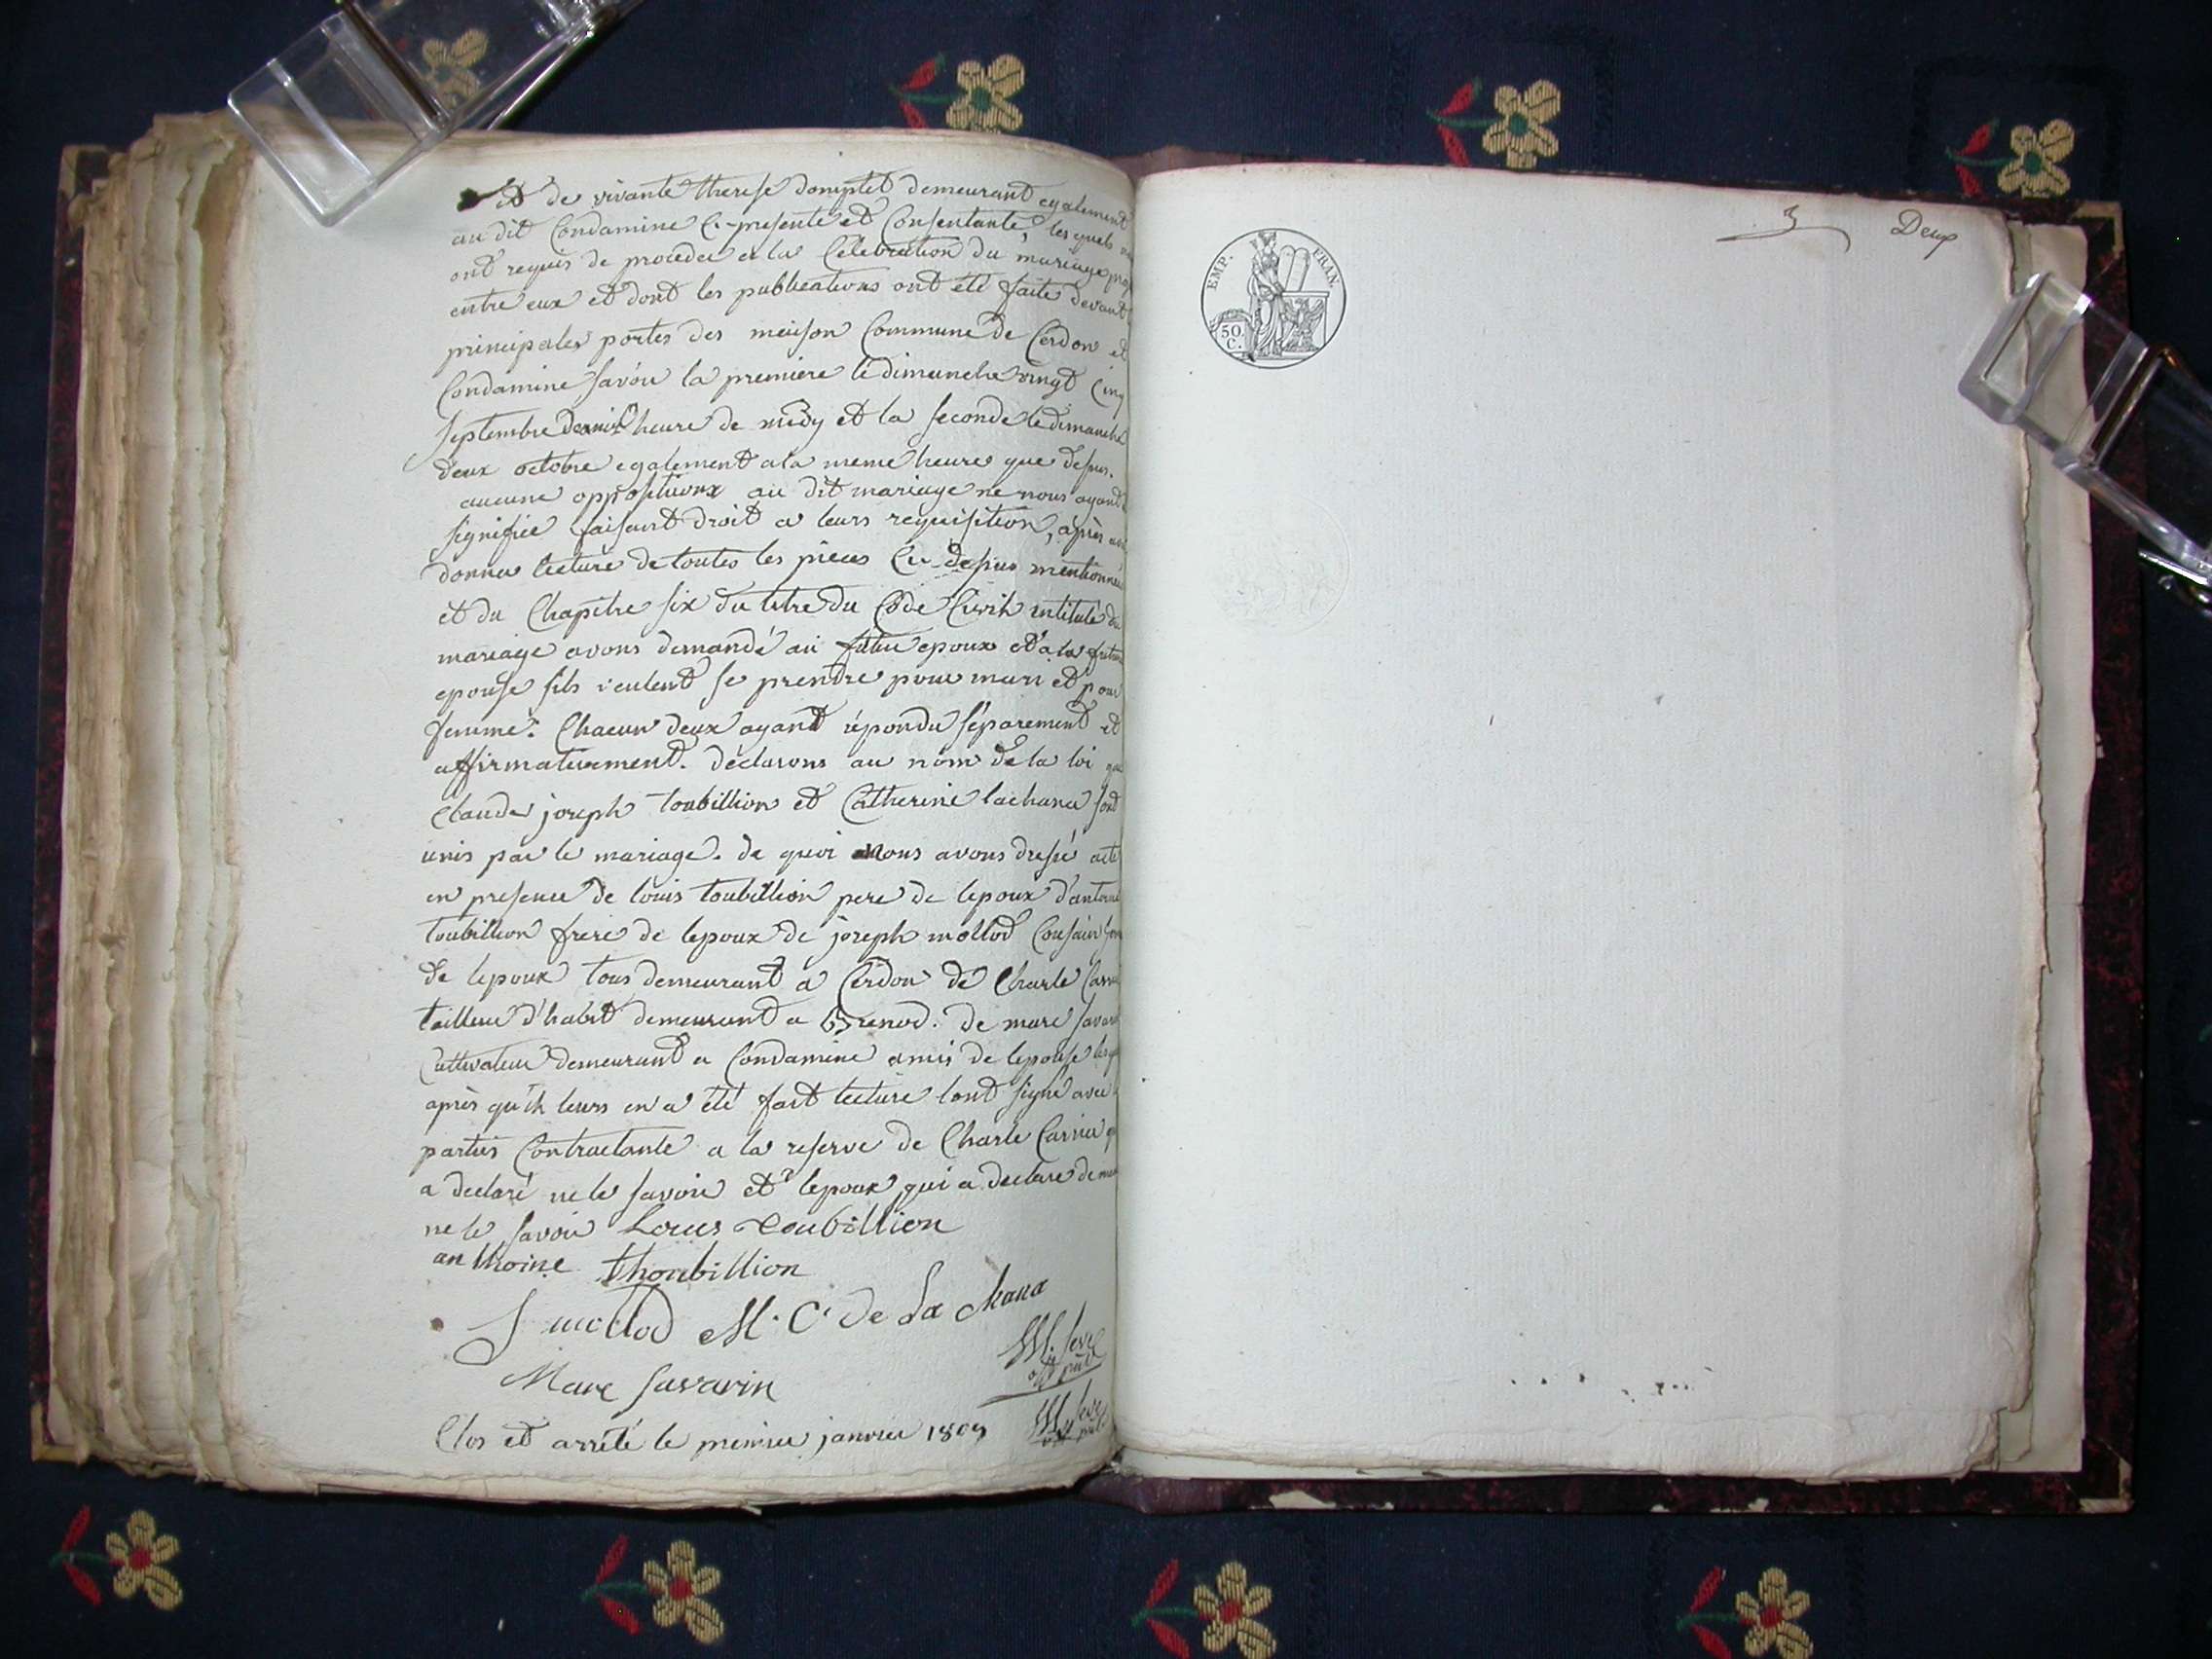 et de vivante therese domptet demeurant egalement
au dit Condamine Ci-presente et Consentante, les quels
ont requis de proceder a la Celebration du mariage
entre eux et dont les publications ont été faite devant
principales portes des maison Commune de Cerdon et
Condamine savoir la premiere le dimanche vingt Cinq
septembre dernier heure de midy et la seconde le dimanche
deux octobre egalement a la meme heure que desus.
aucune oppositions au dit mariage ne nous ayant
signifiée faisant droit a leurs requisition, après
donner lecture de toutes les pièces Ci-desus mentionnée
et du Chapitre six du titre du Code Civil intitulé du
mariage avons demandé au futur epoux et a la future
epouse sils veulent se prendre pour mari et pour
femme: Chacun deux ayant repondu séparement et
affirmativement. déclarons au nom de la loi que
Claude joseph toubillion et Catherine lachana sont
unis par le mariage. de quoi nous avons dressé acte
en presence de louis toubillion pere de lepoux d'antoine
toubillion frere de lepoux de joseph mollod Cousain
de lepoux tous demeurant a Cerdon de Charle
tailleur d'habit demeurant a Brenod. de marc
Cultivateur demeurant a Condamine amis de lepouse
après qu'il leurs en a été fait lecture lont signé avec
parties Contractante a la reserve de Charle Carrier
a declaré ne le savoir et lepoux qui a declare de
ne le savoir Louis Toubillion
anthoine thoubillion
J mollod M. C. De La chana
Marc Savarin
Clos et arrété le premier janvier 1809
3 Deux
EMP. FRAN.
50.
C.